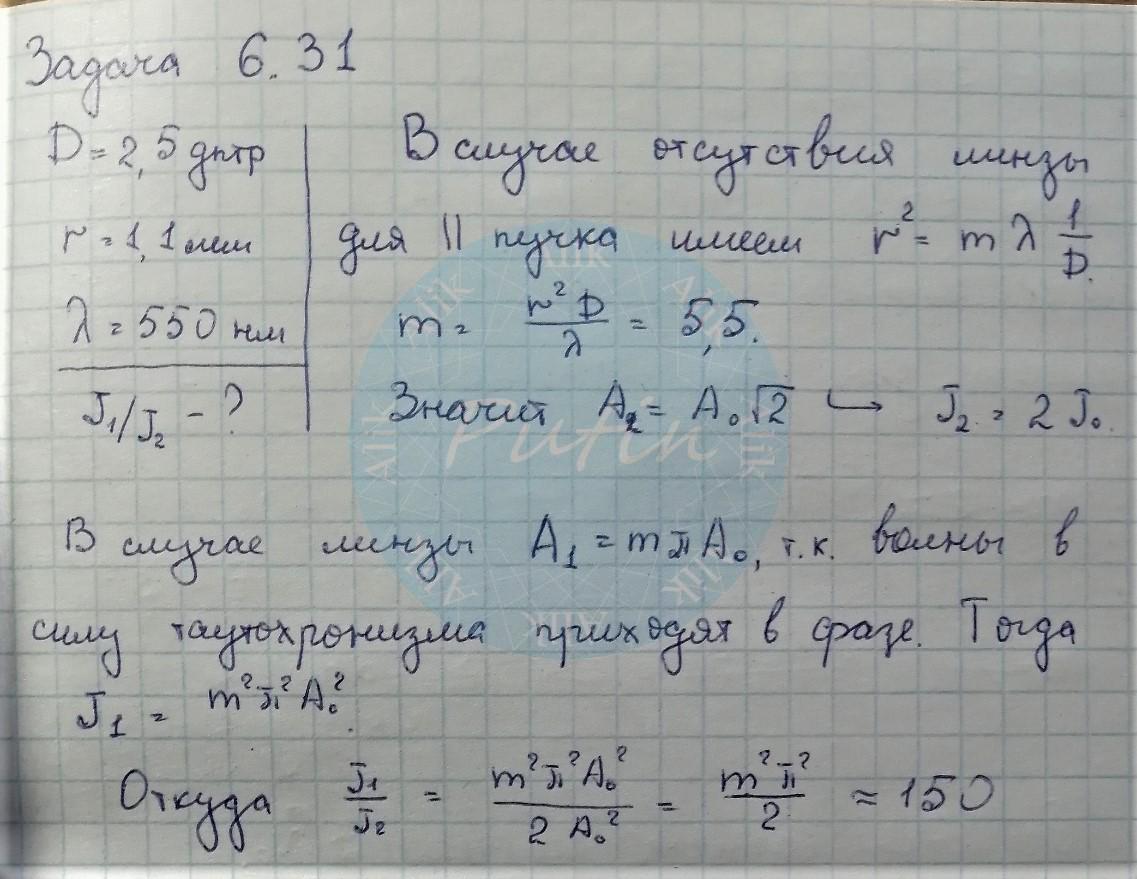 Задача 6.31
D = 2,5 дптр
r = 1,1 мм
λ = 550 нм
J₁/J₂ - ?
В случае отсутствия линзы
для || пучка имеем r² = mλ 1/D.
m = r²D/λ = 5,5.
Значит A₂ = A₀√2 ↪ J₂ = 2J₀.
В случае линзы A₁ = mπA₀, т.к. волны в
силу таутохронизма приходят в фазе. Тогда
J₁ = m²π²A₀².
Откуда J₁/J₂ = m²π²A₀²/2A₀² = m²π²/2 ≈ 150
Alik
Putin